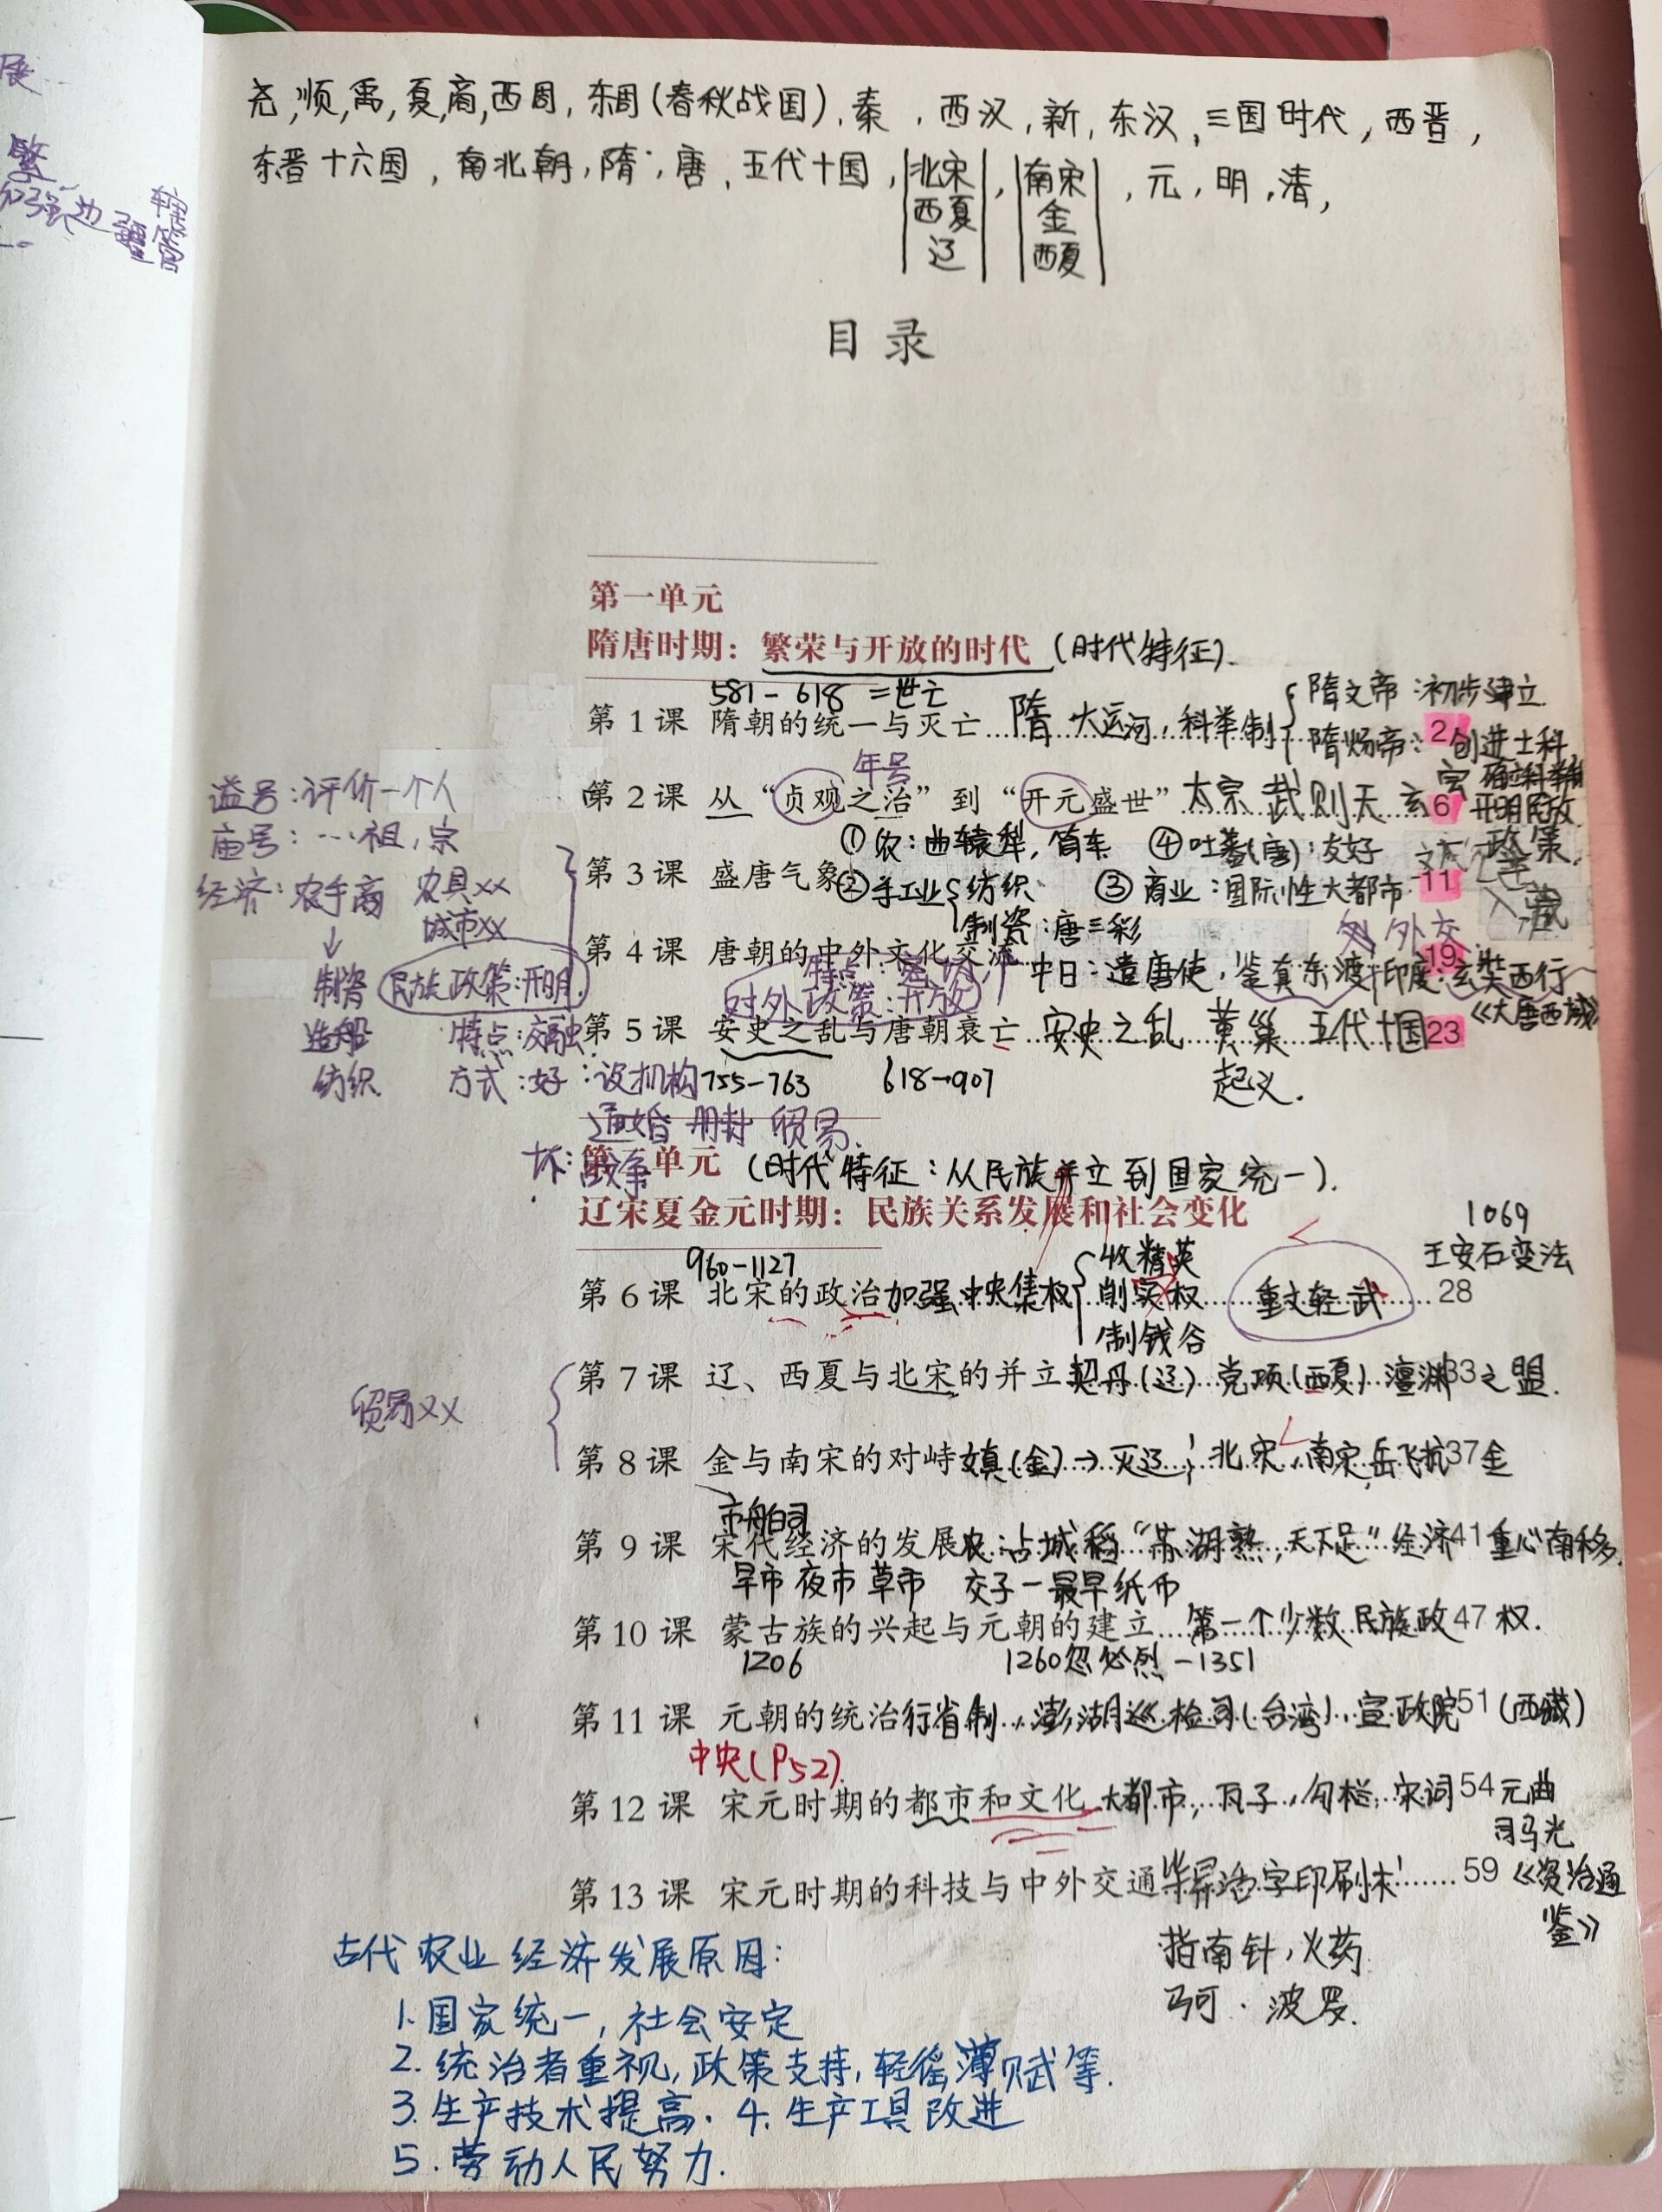 展
繁
加强边疆
辖
管
尧,顺,禹,夏商,西周,东周(春秋战国),秦,西汉,新,东汉,三国时代,西晋,
东晋十六国,南北朝,隋,唐,五代十国,|北宋|,|南宋|,元,明,清,
西夏 金
辽 西夏
目录
第一单元
隋唐时期：繁荣与开放的时代 (时代特征).
581-618 =世亡
隋文帝:初步建立.
第1课 隋朝的统一与灭亡 隋 大运河,科举制 2
隋炀帝:创进士科,
年号
谥号:评价一个人
第2课 从“贞观之治”到“开元盛世” 太宗 武则天 玄宗 6
开明民放
政策,
庙号:…祖,宗
①农:曲辕犁,筒车 ④吐蕃(唐):友好
第3课 盛唐气象 11
②手工业{纺织 ③商业:国际性大都市
制瓷:唐三彩
入藏
经济:农手商 农具xx
城市xx
外交
第4课 唐朝的中外文化交流 19
中日:遣唐使,鉴真东渡,印度:玄奘西行
《大唐西域
对外政策:开放
↓
制瓷 民族政策:开明
造船 特点:交融
纺织 方式:好:设机构
通婚 册封 贸易.
坏:战争
第5课 安史之乱与唐朝衰亡 安史之乱 黄巢 五代十国 23
755-763 618→907 起义.
第二单元 (时代特征:从民族并立到国家统一).
辽宋夏金元时期：民族关系发展和社会变化
1069
王安石变法
960-1127
收精英
第6课 北宋的政治 加强中央集权 削实权 重文轻武 28
制钱谷
第7课 辽、西夏与北宋的并立 契丹(辽) 党项(西夏) 澶渊33之盟.
贸易xx
第8课 金与南宋的对峙 女真(金)→灭辽,北宋,南宋岳飞抗37金
市舶司
第9课 宋代经济的发展 农:占城稻“苏湖熟,天下足”经济41重心南移.
早市 夜市 草市 交子-最早纸币
第10课 蒙古族的兴起与元朝的建立 第一个少数民族政47权.
1206 1260忽必烈-1351
第11课 元朝的统治 行省制,澎湖巡检司(台湾),宣政院51(西藏)
中央(P52).
第12课 宋元时期的都市和文化 大都市,瓦子,勾栏,宋词54元曲
司马光
第13课 宋元时期的科技与中外交通 毕昇活字印刷术 59 《资治通
鉴》
指南针,火药.
马可·波罗.
古代农业经济发展原因:
1.国家统一,社会安定
2.统治者重视,政策支持,轻徭薄赋等.
3.生产技术提高.4.生产工具改进
5.劳动人民努力.